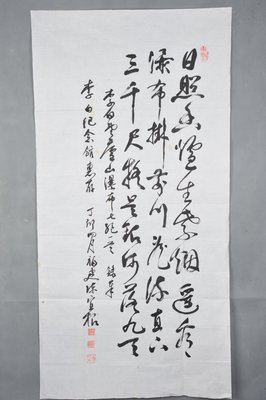 日照香爐生紫烟遥看
瀑布掛前川飛流直下
三千尺疑是銀河落九天
李白望廬山瀑布七絶一首 錄奉
李白纪念館惠存 丁卯四月福建陳